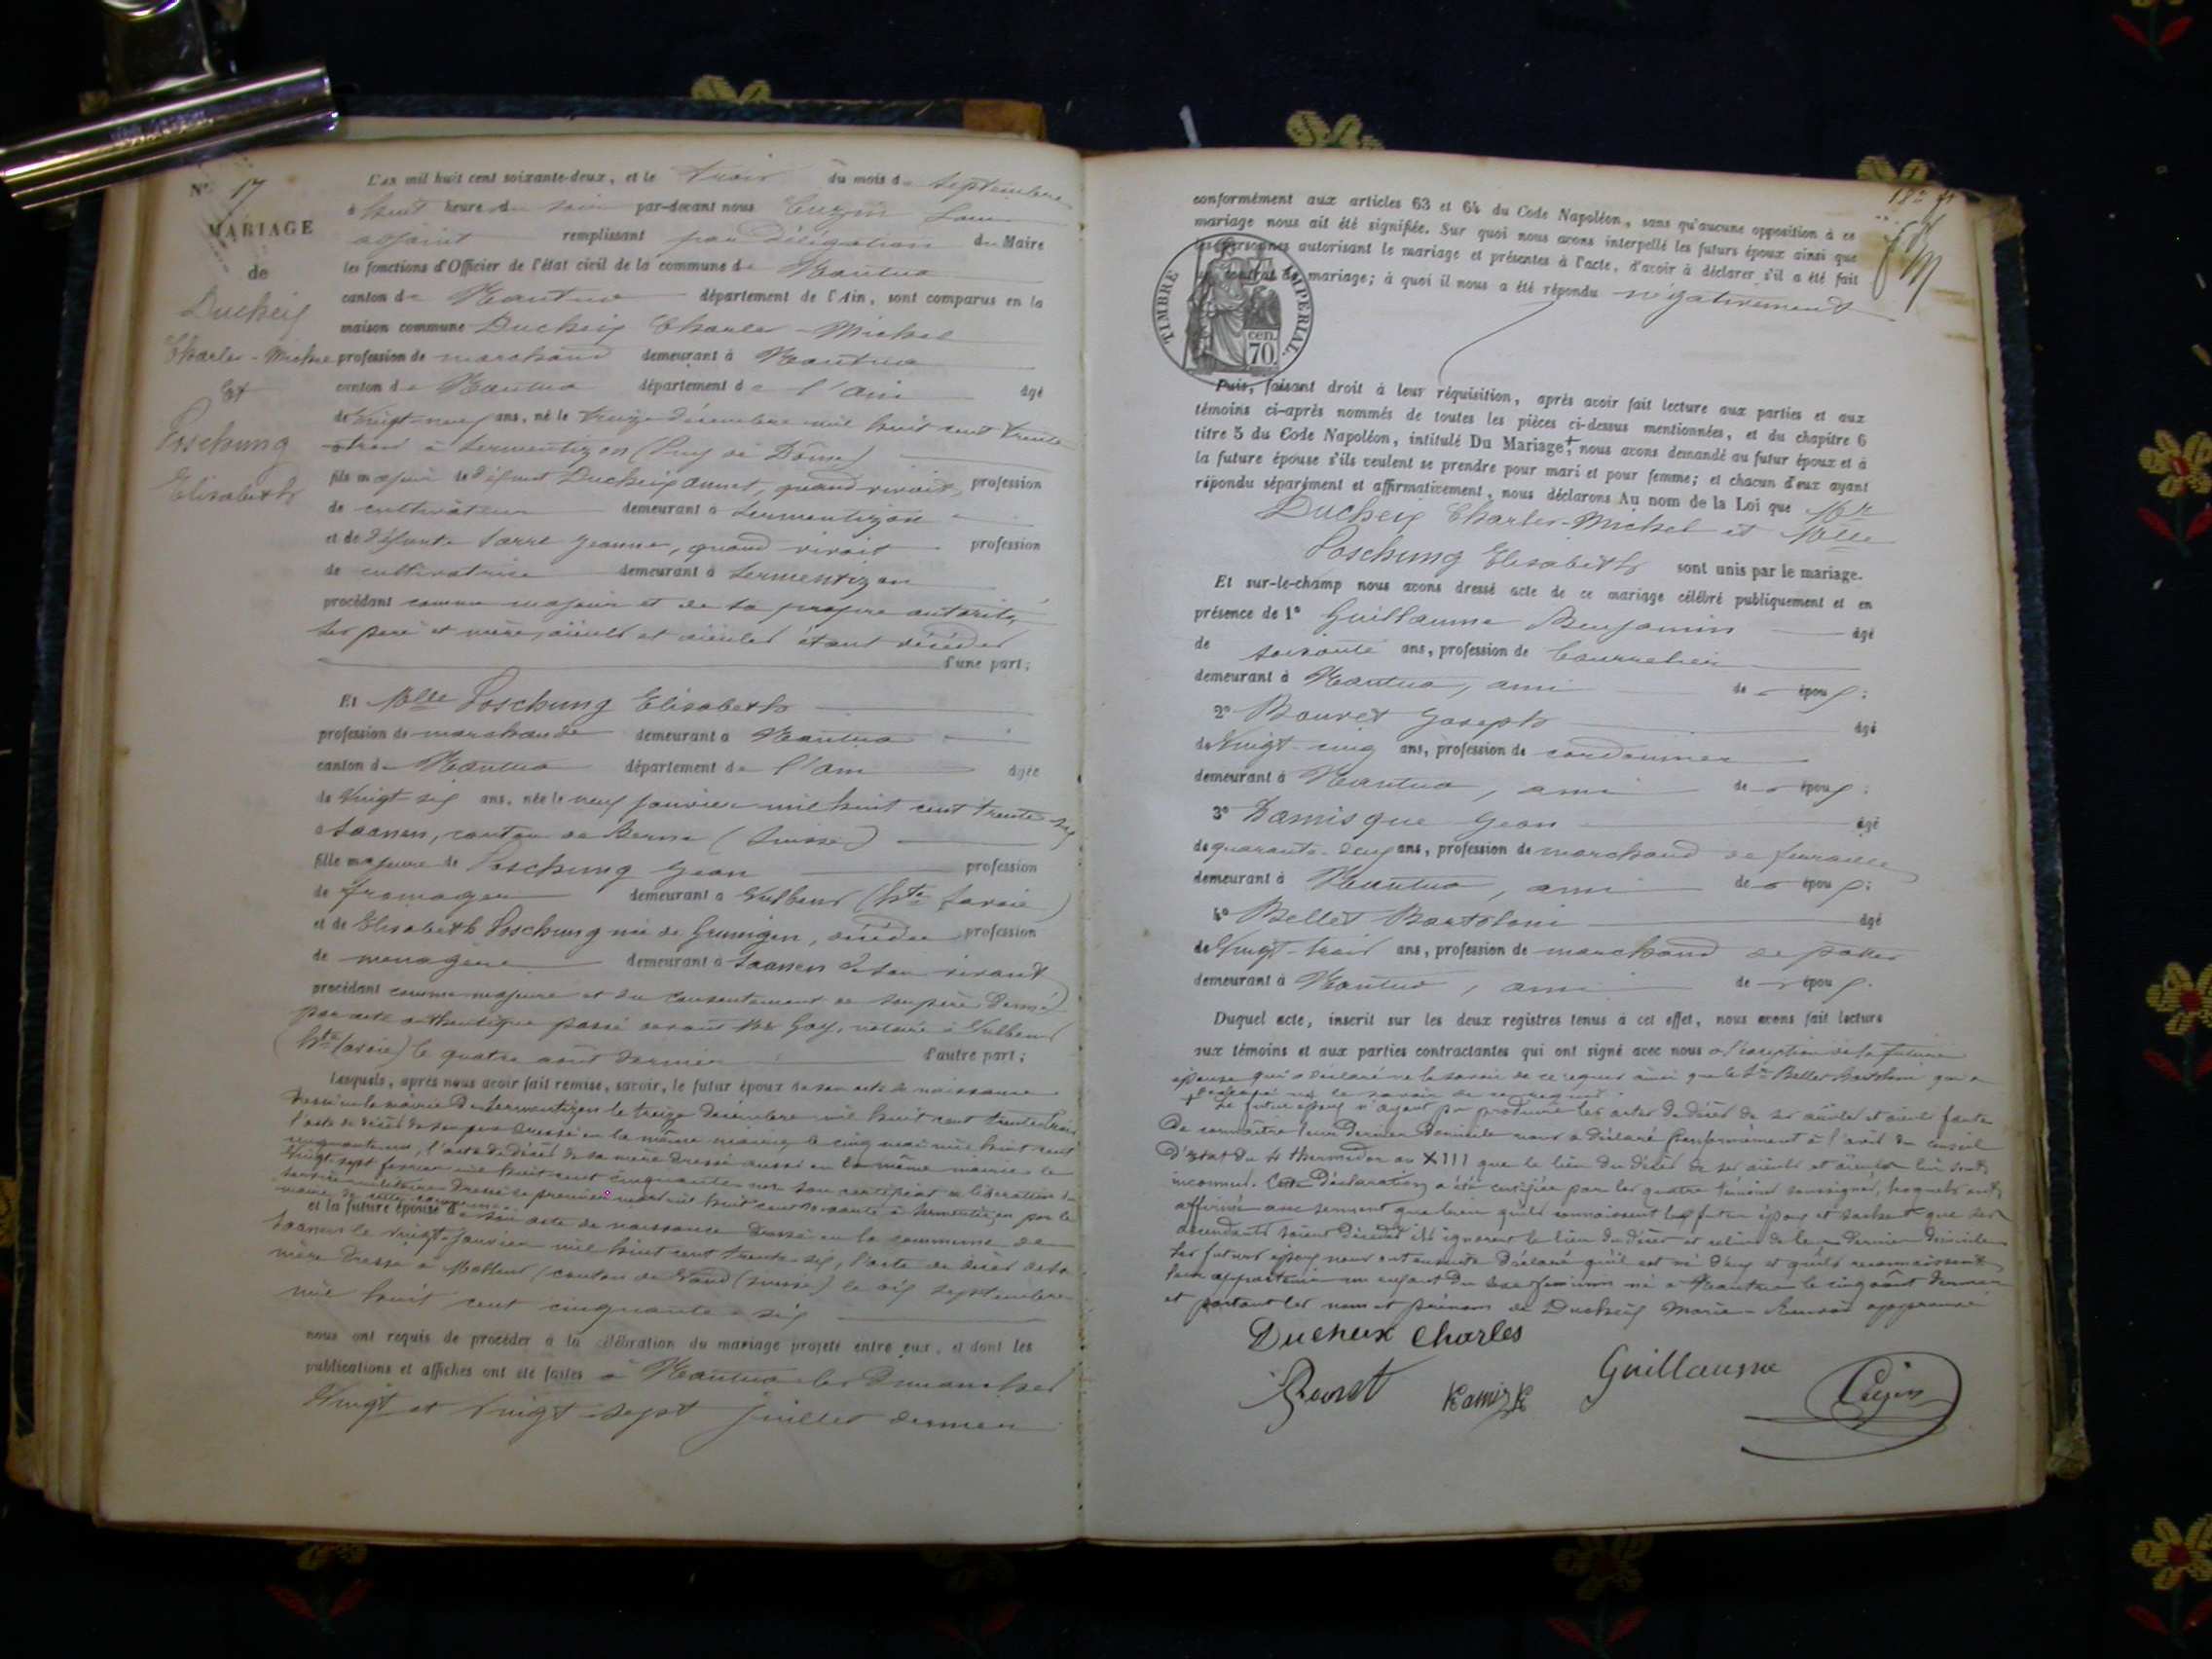 N° 17
MARIAGE
de
Ducheix
Charles-Michel
Et
Poschung
Elisabeth
L'an mil huit cent soixante-deux, et le trois du mois de septembre
à huit heure du soir par-devant nous Cuzin
adjoint remplissant par délégation du Maire
les fonctions d'Officier de l'état civil de la commune de Nantua
canton de Nantua département de l'Ain, sont comparus en la
maison commune Ducheix Charles-Michel
profession de marchand demeurant à Nantua
canton de Nantua département de l'Ain âgé
de vingt-neuf ans, né le treize décembre mil huit cent trente
trois à Sermentizon (Puy de Dôme)
fils majeur de défunt Ducheix Annet, quand vivait, profession
de cultivateur demeurant à Sermentizon
et de défunte Sarre Jeanne, quand vivait profession
de cultivatrice demeurant à Sermentizon
procédant comme majeur et de sa propre autorité,
ses père et mère, aïeuls et aïeules étant décédés
d'une part;
Et Melle Poschung Elisabeth
profession de marchande demeurant à Nantua
canton de Nantua département de l'Ain âgée
de vingt-six ans, née le neuf janvier mil huit cent trente-six
à Saanen, canton de Berne (Suisse)
fille majeure de Poschung Jean profession
de fromager demeurant à Vulbens (hte Savoie)
et de Elisabeth Poschung née de Grunigen, décédée profession
de ménagère demeurant à Saanen de son vivant
procédant comme majeure et du consentement de son père donné
par acte authentique passé devant Me Gay, notaire à Vulbens
(hte Savoie) le quatre août dernier d'autre part;
Lesquels, après nous avoir fait remise, savoir, le futur époux de son acte de naissance
dressé en la mairie de Sermentizon le treize décembre mil huit cent trente trois
l'acte de décès de son père dressé en la même mairie, le cinq mai mil huit cent
cinquante , l'acte de décès de sa mère dressé aussi en la même mairie le
vingt-sept février mil huit cent cinquante son certificat de libération du
service militaire dressé le premier mars mil huit cent soixante à Sermentizon par le
maire de cette commune
et la future épouse de son acte de naissance dressé en la commune de
Saanen le vingt janvier mil huit cent trente-six, l'acte de décès de sa
mère dressé à (canton de Vaud (suisse) le dix septembre
mil huit cent cinquante-six
nous ont requis de procéder à la célébration du mariage projeté entre eux, et dont les
publications et affiches ont été faites à Nantua les dimanches
vingt et vingt-sept juillet dernier
conformément aux articles 63 et 64 du Code Napoléon, sans qu'aucune opposition à ce
mariage nous ait été signifiée. Sur quoi nous avons interpellé les futurs époux ainsi que
les personnes autorisant le mariage et présentes à l'acte, d'avoir à déclarer s'il a été fait
un contrat de mariage; à quoi il nous a été répondu négativement
TIMBRE IMPERIAL
cen. 70
Puis, faisant droit à leur réquisition, après avoir fait lecture aux parties et aux
témoins ci-après nommés de toutes les pièces ci-dessus mentionnées, et du chapitre 6
titre 5 du Code Napoléon, intitulé Du Mariage, nous avons demandé au futur époux et à
la future épouse s'ils veulent se prendre pour mari et pour femme; et chacun d'eux ayant
répondu séparément et affirmativement, nous déclarons Au nom de la Loi que Mr
Ducheix Charles-Michel et Melle
Poschung Elisabeth sont unis par le mariage.
Et sur-le-champ nous avons dressé acte de ce mariage célébré publiquement et en
présence de 1° Guillaume Benjamin âgé
de soixante ans, profession de Bourrelier
demeurant à Nantua, ami de époux;
2° Bouvet Joseph âgé
de vingt-cinq ans, profession de cordonnier
demeurant à Nantua, ami de époux;
3° Kamisque Jean âgé
de quarante-deux ans, profession de marchand de ferrailles
demeurant à Nantua, ami de époux;
4° Bellet Bartolomi âgé
de vingt-trois ans, profession de marchand de
demeurant à Nantua, ami de époux.
Duquel acte, inscrit sur les deux registres tenus à cet effet, nous avons fait lecture
aux témoins et aux parties contractantes qui ont signé avec nous à l'exception de la future
épouse qui a déclaré ne le savoir de ce requis ainsi que le Sr Bellet Bartolomi qui a
déclaré ne le savoir de ce requis
Le futur époux n'ayant pu produire les actes de décès de ses aïeules et aïeuls faute
de connaître leur dernier domicile nous a déclaré conformément à l'avis du conseil
d'Etat du 4 thermidor an XIII que le lieu du décès de ses aïeuls et aïeules lui sont
inconnus. Cette déclaration a été certifiée par les quatre témoins soussignés, lesquels ont
affirmé avec serment que bien qu'ils connaissent le futur époux et sachent que ses
ascendants soient décédés ils ignorent le lieu du décès et celui de leur dernier domicile
Les futurs époux nous ont ensuite déclaré qu'il est né d'eux et qu'ils reconnaissent
leur appartenir un enfant du sexe féminin né à Nantua le cinq août dernier
et portant les nom et prénoms de Ducheix Marie-
Ducheix Charles
Bouvet Kamisk Guillaume Cuzin